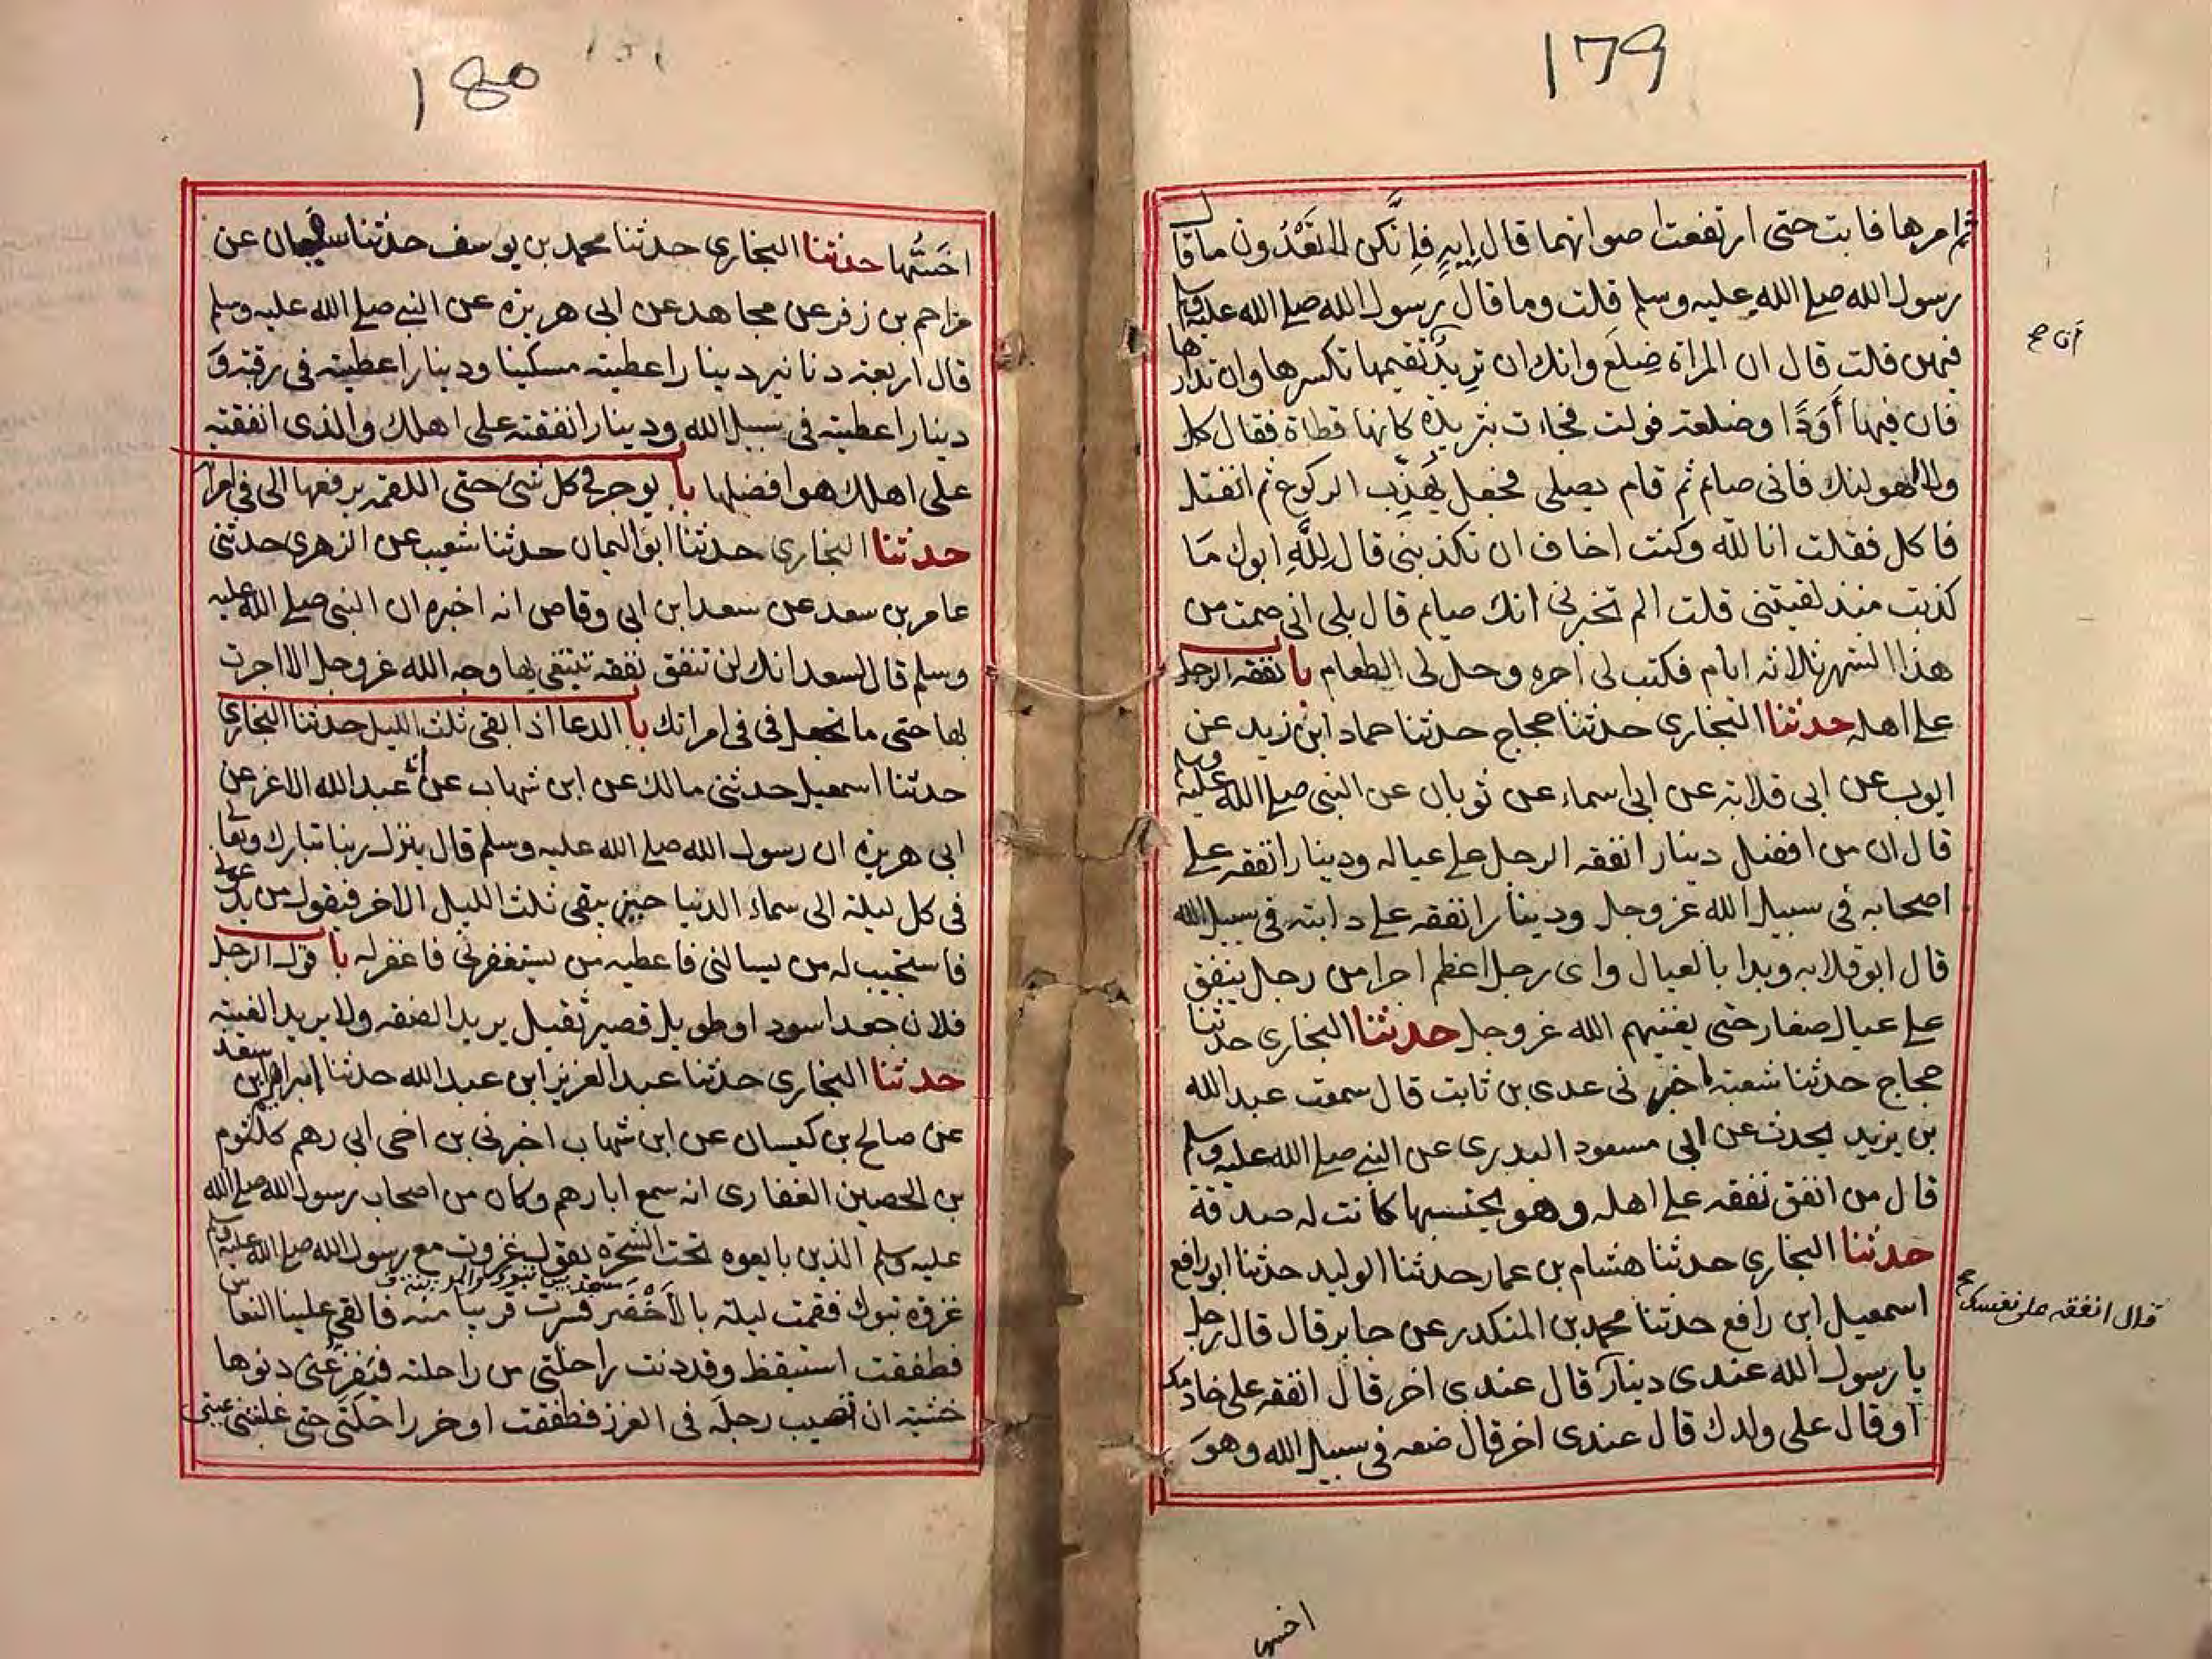 179
ثم امرها فابت حتى ارتفعت اصواتهما قال ايهٍ فانكن لا تعدون ما قال
رسول الله صلے الله عليه وسلم قلت وما قال رسول الله صلے الله عليه وسلم
فيهن قلت قال ان المراة ضلع وانك ان تريد تقيمها تكسرها وان تدارها
فان فيها أَوَدًا وضلعة فولت فجاءت بثريدة كانها قطاة فقال كل
ولا اهولنك فانى صايم ثم قام يصلى فجعل يهذب الركوع ثم انفتل
فاكل فقلت انا لله وكنت اخاف ان تكذبنى قال لله ابوك ما
كذبت منذ لقيتنى قلت الم تخبرنى انك صايم قال بلى انى صمت من
هذا الشهر ثلاثه ايام فكتب لى اجره وحل لى الطعام با نفقه الرجل
علے اهله حدثنا البخارى حدثنا حجاج حدثنا حماد ابن زيد عن
ايوب عن ابى قلابة عن ابى اسماء عن ثوبان عن النبى صلے الله عليه وسلم
قال ان من افضل دينار انفقه الرجل علے عياله ودينار انفقه علے
اصحابه فى سبيل الله عز وجل ودينارا انفقه علے دابته فى سبيل الله
قال ابو قلابه وبدا بالعيال واى رجل اعظم اجرا من رجل ينفق
علے عيال صغار حتى يغنيهم الله عز وجل حدثنا البخارى حدثنا
حجاج حدثنا شعبة اخبرنى عدى بن ثابت قال سمعت عبد الله
بن يزيد يحدث عن ابى مسعود البدرى عن النبى صلے الله عليه وسلم
قال من انفق نفقه علے اهله وهو يحتسبها كانت له صدقة
حدثنا البخارى حدثنا هشام بن عمار حدثنا الوليد حدثنا ابو رافع
اسمعيل ابن رافع حدثنا محمد بن المنكدر عن جابر قال قال رجل
يا رسول الله عندى دينار قال عندى اخر قال انفقه على خادمك
او قال على ولدك قال عندى اخر قال ضعه فى سبيل الله وهو
قال انفقه على نفسك
اخسها
180
اخسُّها حدثنا البخارى حدثنا محمد بن يوسف حدثنا سفيان عن
مزاحم بن زفر عن مجاهد عن ابى هريرة عن النبى صلے الله عليه وسلم
قال اربعة دنانير دينارا اعطيته مسكينا ودينارا اعطيته فى رقبة و
دينارا اعطيته فى سبيل الله ودينارا انفقته على اهلك والذى انفقته
على اهلك هو افضلها با يوجر فى كل شئ حتى اللقمه يرفعها الى فى امراته
حدثنا البخارى حدثنا ابو اليمان حدثنا شعيب عن الزهرى حدثنى
عامر بن سعد عن سعد ابن ابى وقاص انه اخبره ان النبى صلے الله عليه
وسلم قال لسعد انك لن تنفق نفقه تبتغى بها وجه الله عز وجل الا اجرت
بها حتى ما تجعل فى فى امراتك با الدعا اذا بقى ثلث الليل حدثنا البخارى
حدثنا اسمعيل حدثنى مالك عن ابن شهاب عن ابى عبد الله الاغر عن
ابى هريرة ان رسول الله صلے الله عليه وسلم قال ينزل ربنا تبارك وتعالى
فى كل ليلة الى سماء الدنيا حين يبقى ثلث الليل الاخر فيقول من يدعونى
فاستجيب له من يسالنى فاعطيه من يستغفرنى فاغفر له با قول الرجل
فلان جعد اسود او طويل قصير ثقيل يريد الصفه ولا يريد الغيبة
حدثنا البخارى حدثنا عبد العزيز ابن عبد الله حدثنا ابراهيم ابن سعد
عن صالح بن كيسان عن ابن شهاب اخبرنى بن اخى ابى رهم كلثوم
بن الحصين الغفارى انه سمع ابا رهم وكان من اصحاب رسول الله صلے الله
عليه وسلم الذين بايعوه تحت الشجرة يقول غزوت مع رسول الله صلے الله عليه وسلم
غزوة تبوك فقمت ليلة بالاَخْضَر فسرت قريبا منه فالقى علينا النعاس
فطفقت استيقظ وقد دنت راحلتى من راحلته فيفزعنى دنوها
خشية ان تصيب رجله فى الغرز فطفقت اوخر راحلتى حتى غلبتنى عينى